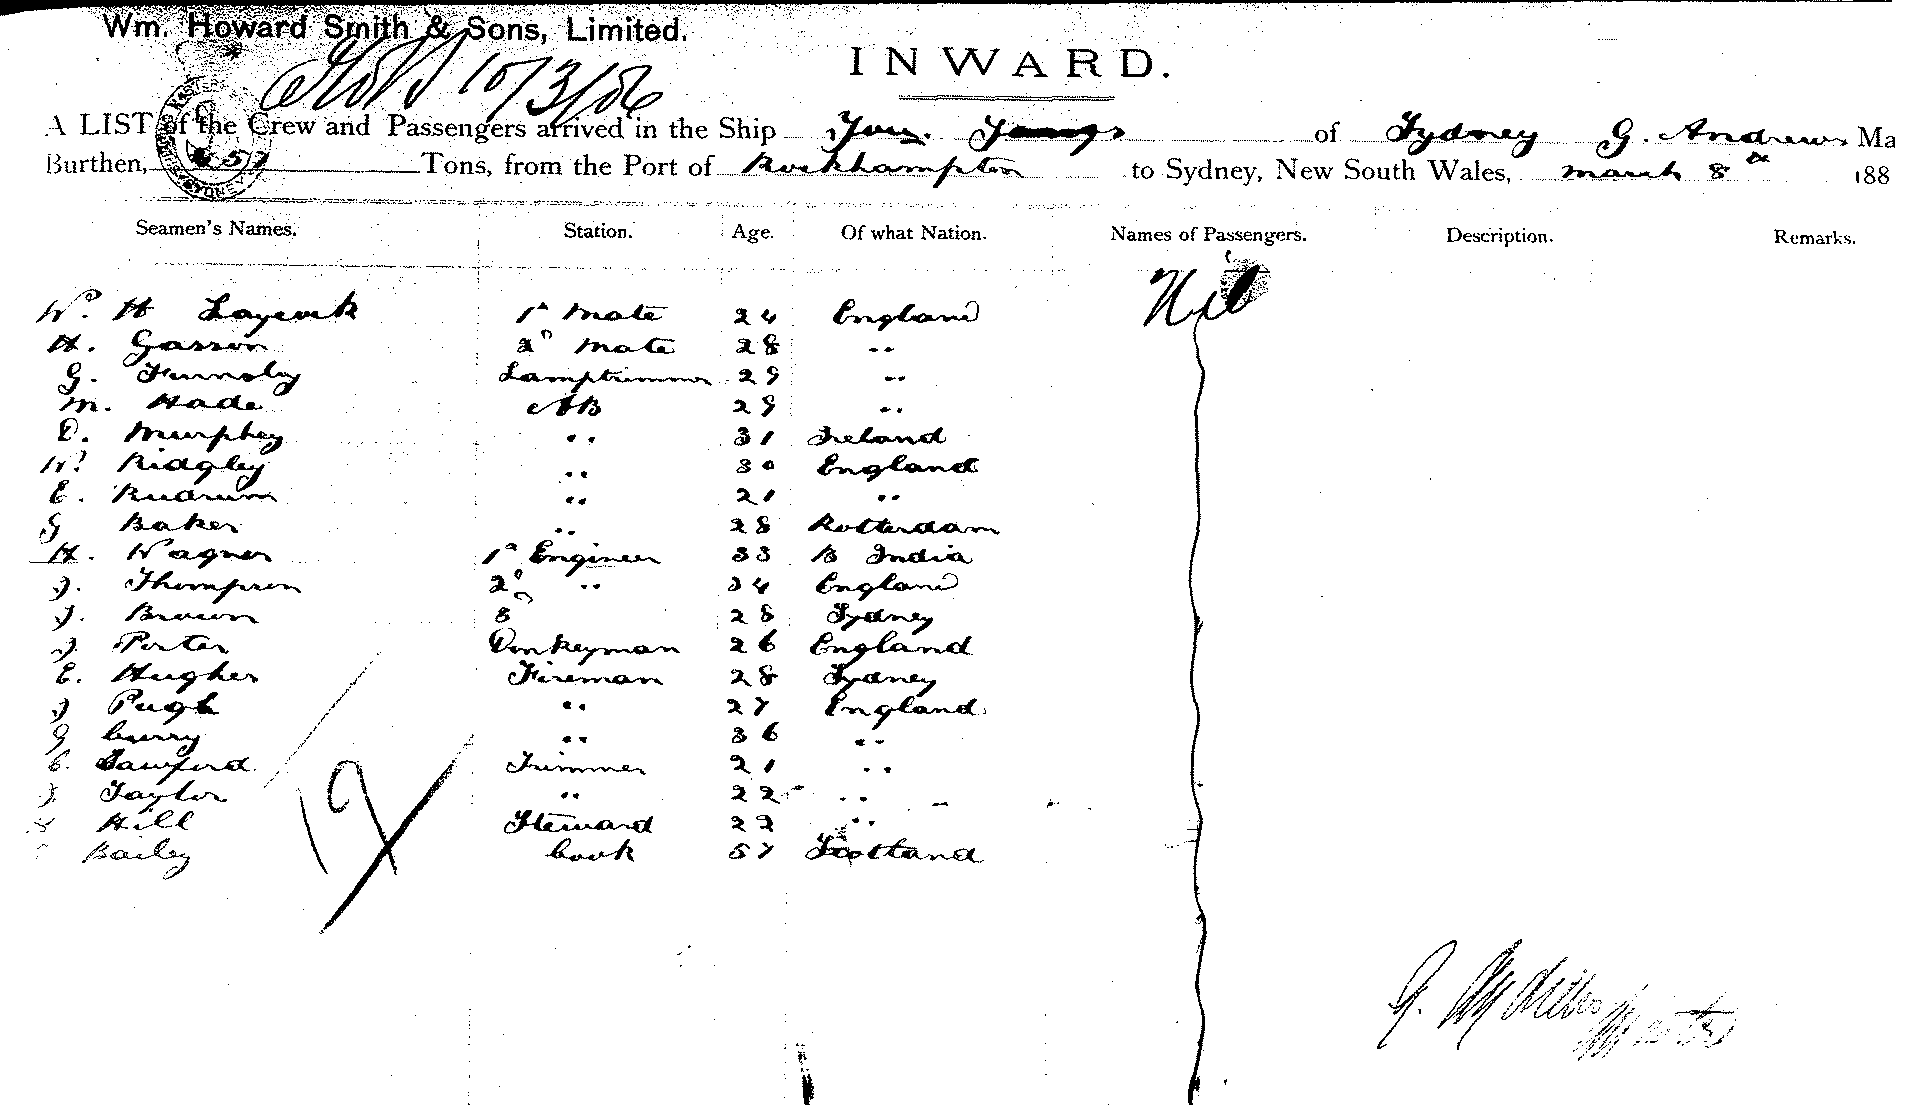 Wm. Howard Smith & Sons, Limited.
10/3/86
INWARD.
A LIST of the Crew and Passengers arrived in the Ship You Yangs of Sydney G. Andrews Ma
Burthen, 457 Tons, from the Port of Rockhampton to Sydney, New South Wales, March 8th 188
Seamen's Names. Station. Age. Of what Nation. Names of Passengers. Description. Remarks.
Nil
W. H Laycock 1st Mate 24 England
H. Gasson 2d Mate 28 ..
G. Lamptrimmer 29 ..
M. Hade AB 29 ..
D. Murphey .. 31 Ireland
W. Ridgley .. 30 England
E. Rudrum .. 21 ..
G Baker .. 28 Rotterdam
H. Wagner 1st Engineer 33 B India
J. Thompson 2d .. 34 England
J. Brown 3 28 Sydney
J. Porter Donkeyman 26 England
E. Hughes Fireman 28 Sydney
J Pugh .. 27 England
G Curry .. 36 ..
C. Sawford Trimmer 21 ..
J. Taylor .. 22 ..
Hill Steward 22 ..
Bailey Cook 57 Scotland
19
G. Master